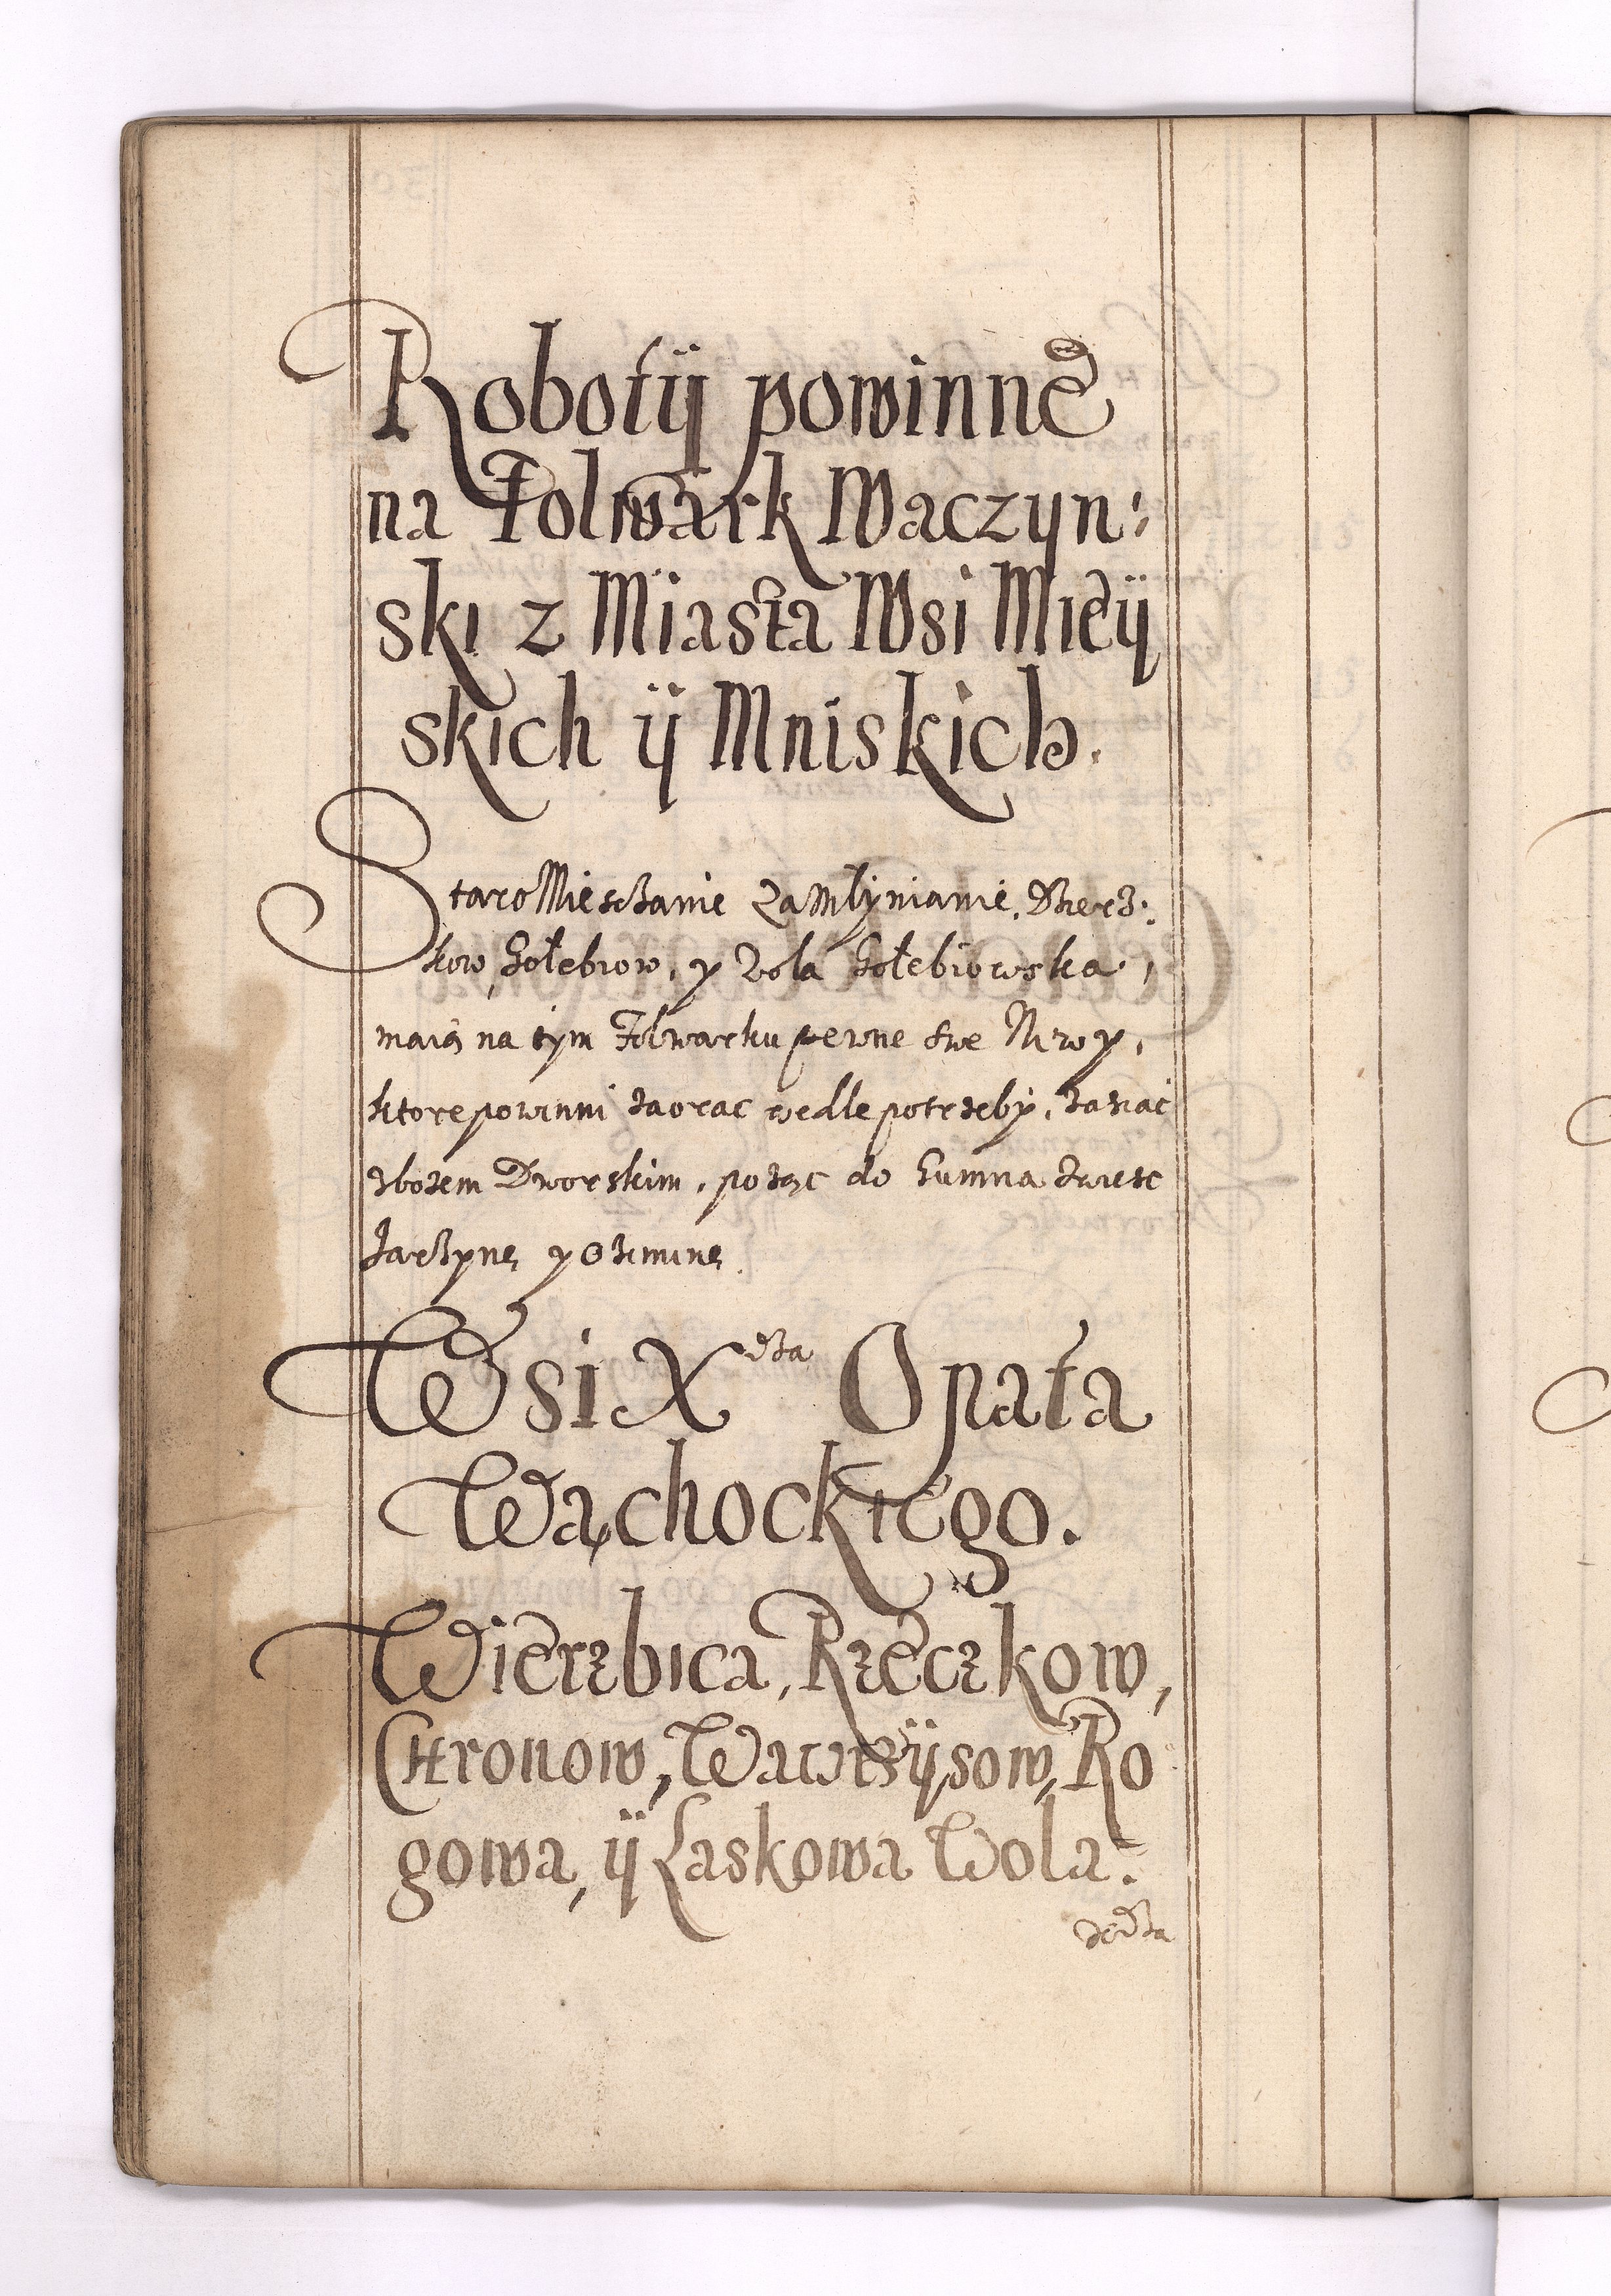 Robotÿ powinne
na Folwark Waczyn:
ski z Miasta Wsi Mieÿ
skich ÿ Mniskich.
StaroMiesczanie ZaMłynianie, Dzierz:
kow, Gołebiow, y Wola Gołebiowska,
maią na tym Folwarku pewne swe Niwy,
ktore powinni zaorac wedle potrzeby, zasiac
zbozem Dworskim, pożąc do Gumna zwiesc
Jarzynę y Oziminę.
Wsi Xdza Opata
Wąchockiego.
Wierzbica, Rzeczkow,
Chronow, Wawrzÿsow, Ro
gowa, ÿ Laskowa Wola.